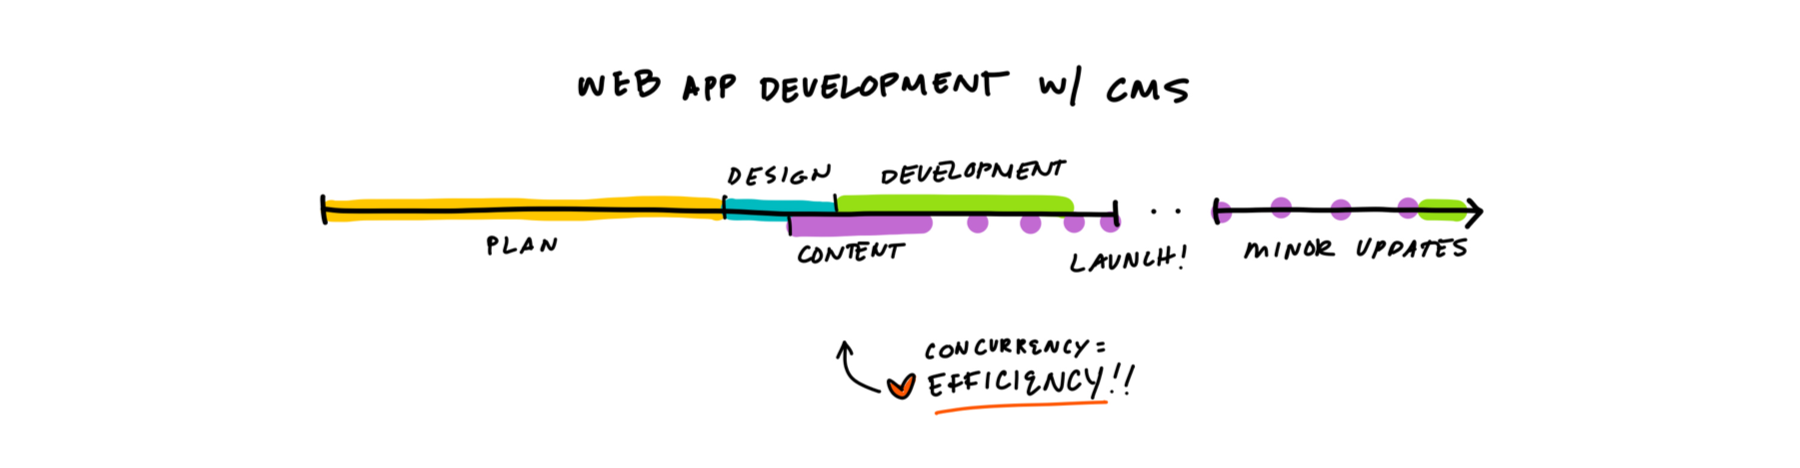 WEB APP DEVELOPMENT W/ CMS
DESIGN
DEVELOPMENT
PLAN
CONTENT
LAUNCH!
MINOR UPDATES
CONCURRENCY =
EFFICIENCY!!